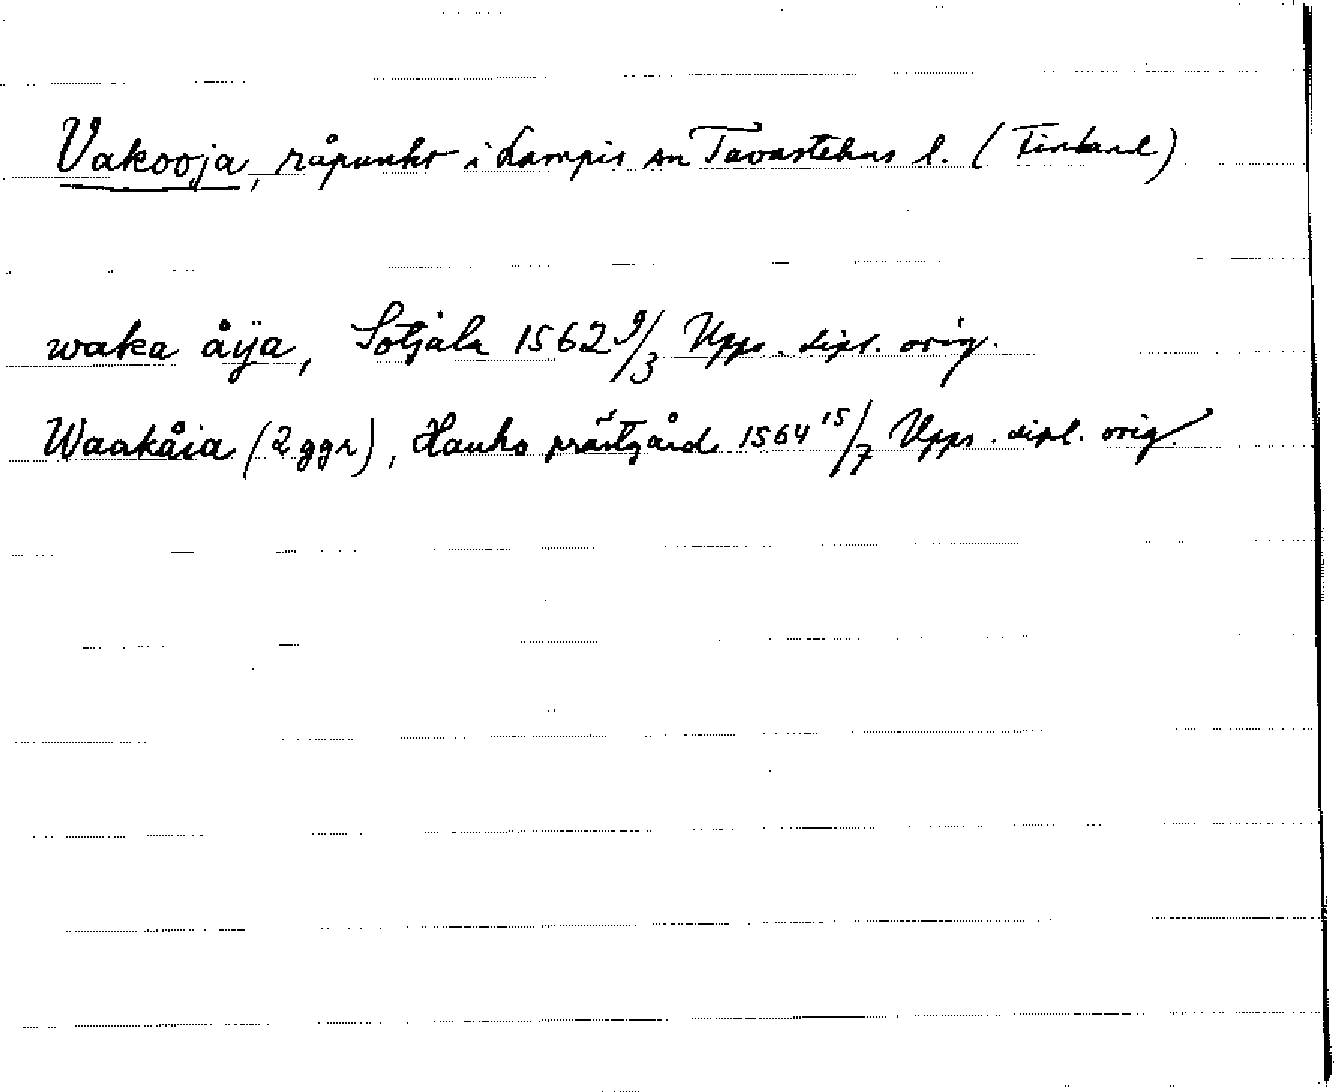 Vakooja, råpunkt i Lampis sn Tavastehus l. (Finland)
waka åÿa, Sotjala 1562 9/3 Upps. dipl. orig.
Waakåia (2 ggr), Hauho prästgård 1564 15/7 Upps. dipl. orig.